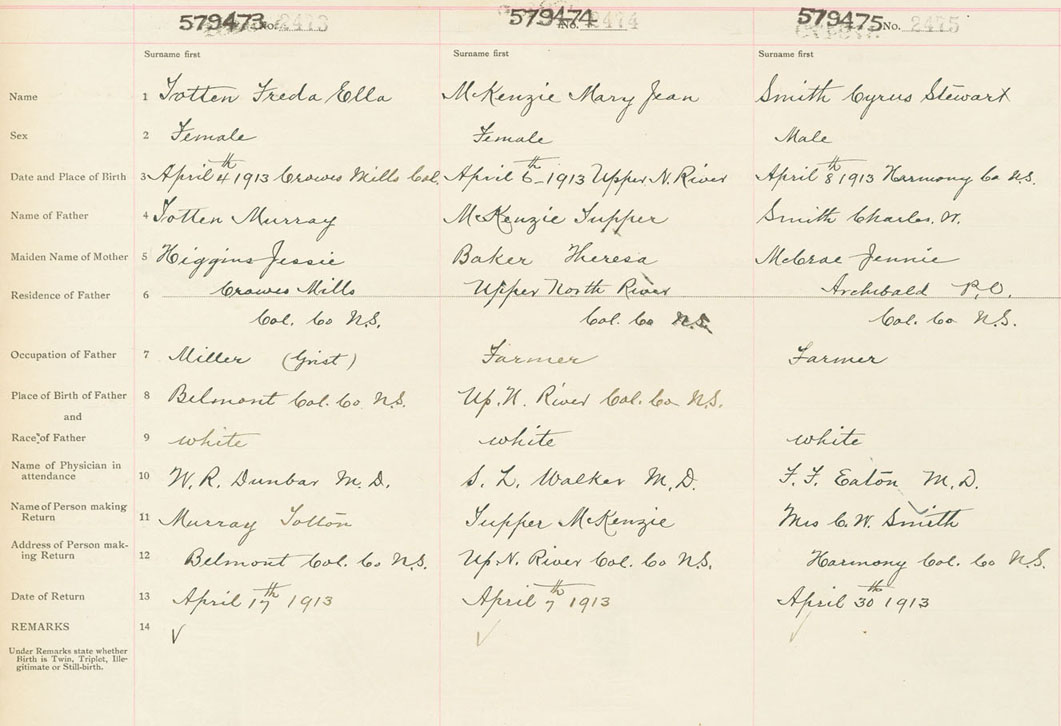 579473 No. 2473 579474 No. 2474 579475 No. 2475
Surname first Surname first Surname first
Name 1 Totten Freda Ella McKenzie Mary Jean Smith Cyrus Stewart
Sex 2 Female Female Male
Date and Place of Birth 3 April 4th 1913 Crowes Mills Col. April 6th 1913 Upper N. River April 8th 1913 Harmony Co N.S.
Name of Father 4 Totten Murray McKenzie Tupper Smith Charles. W.
Maiden Name of Mother 5 Higgins Jessie Baker Theresa McCrae Jennie
Residence of Father 6 Crowes Mills Upper North River Archibald P.O.
Col. Co N.S. Col. Co N.S. Col. Co N.S.
Occupation of Father 7 Miller (Grist) Farmer Farmer
Place of Birth of Father 8 Belmont Col. Co N.S. Up. N. River Col. Co N.S.
and
Race of Father 9 white white white
Name of Physician in
attendance 10 W. R. Dunbar M. D. S. L. Walker M. D. F. F. Eaton M. D.
Name of Person making
Return 11 Murray Totton Tupper McKenzie Mrs C. W. Smith
Address of Person mak-
ing Return 12 Belmont Col. Co N.S. Up N. River Col. Co N.S. Harmony Col. Co N.S.
Date of Return 13 April 17th 1913 April 7th 1913 April 30th 1913
REMARKS 14
Under Remarks state whether
Birth is Twin, Triplet, Ille-
gitimate or Still-birth.